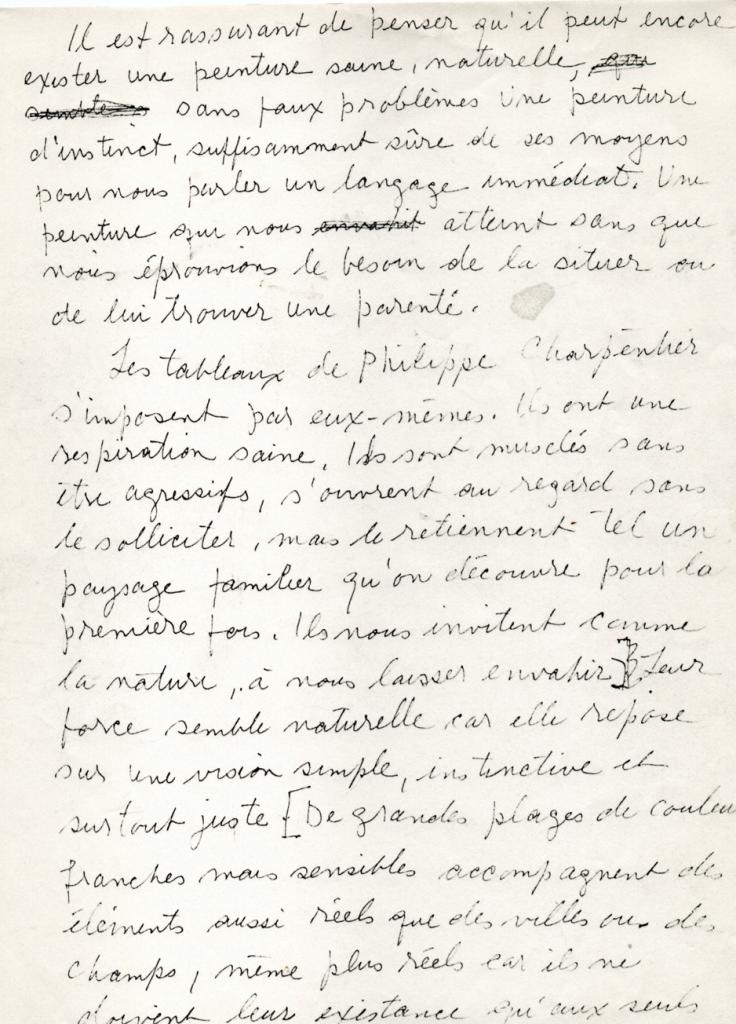 Il est rassurant de penser qu'il peut encore
exister une peinture saine, naturelle, qui
semble sans faux problèmes Une peinture
d'instinct, suffisamment sûre de ses moyens
pour nous parler un langage immédiat. Une
peinture qui nous envahit atteint sans que
nous éprouvions le besoin de la situer ou
de lui trouver une parenté.
Les tableaux de Philippe Charpentier
s'imposent par eux-mêmes. Ils ont une
respiration saine. Ils sont musclés sans
être agressifs, s'ouvrent au regard sans
le solliciter, mais le retiennent tel un
paysage familier qu'on découvre pour la
première fois. Ils nous invitent comme
la nature, à nous laisser envahir] Leur
force semble naturelle car elle repose
sur une vision simple, instinctive et
surtout juste [De grandes plages de couleur
franches mais sensibles accompagnent des
éléments aussi réels que des villes ou des
champs, même plus réels car ils ne
doivent leur existance qu'aux seuls